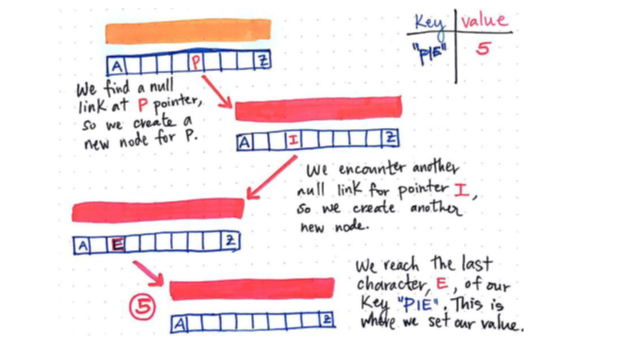 Key value
"PIE" 5
A P Z
We find a null
link at P pointer,
so we create a
new node for P.
A I Z
We encounter another
null link for pointer I,
so we create another
new node.
A E Z
We reach the last
character, E, of our
Key "PIE". This is
where we set our value.
5
A Z